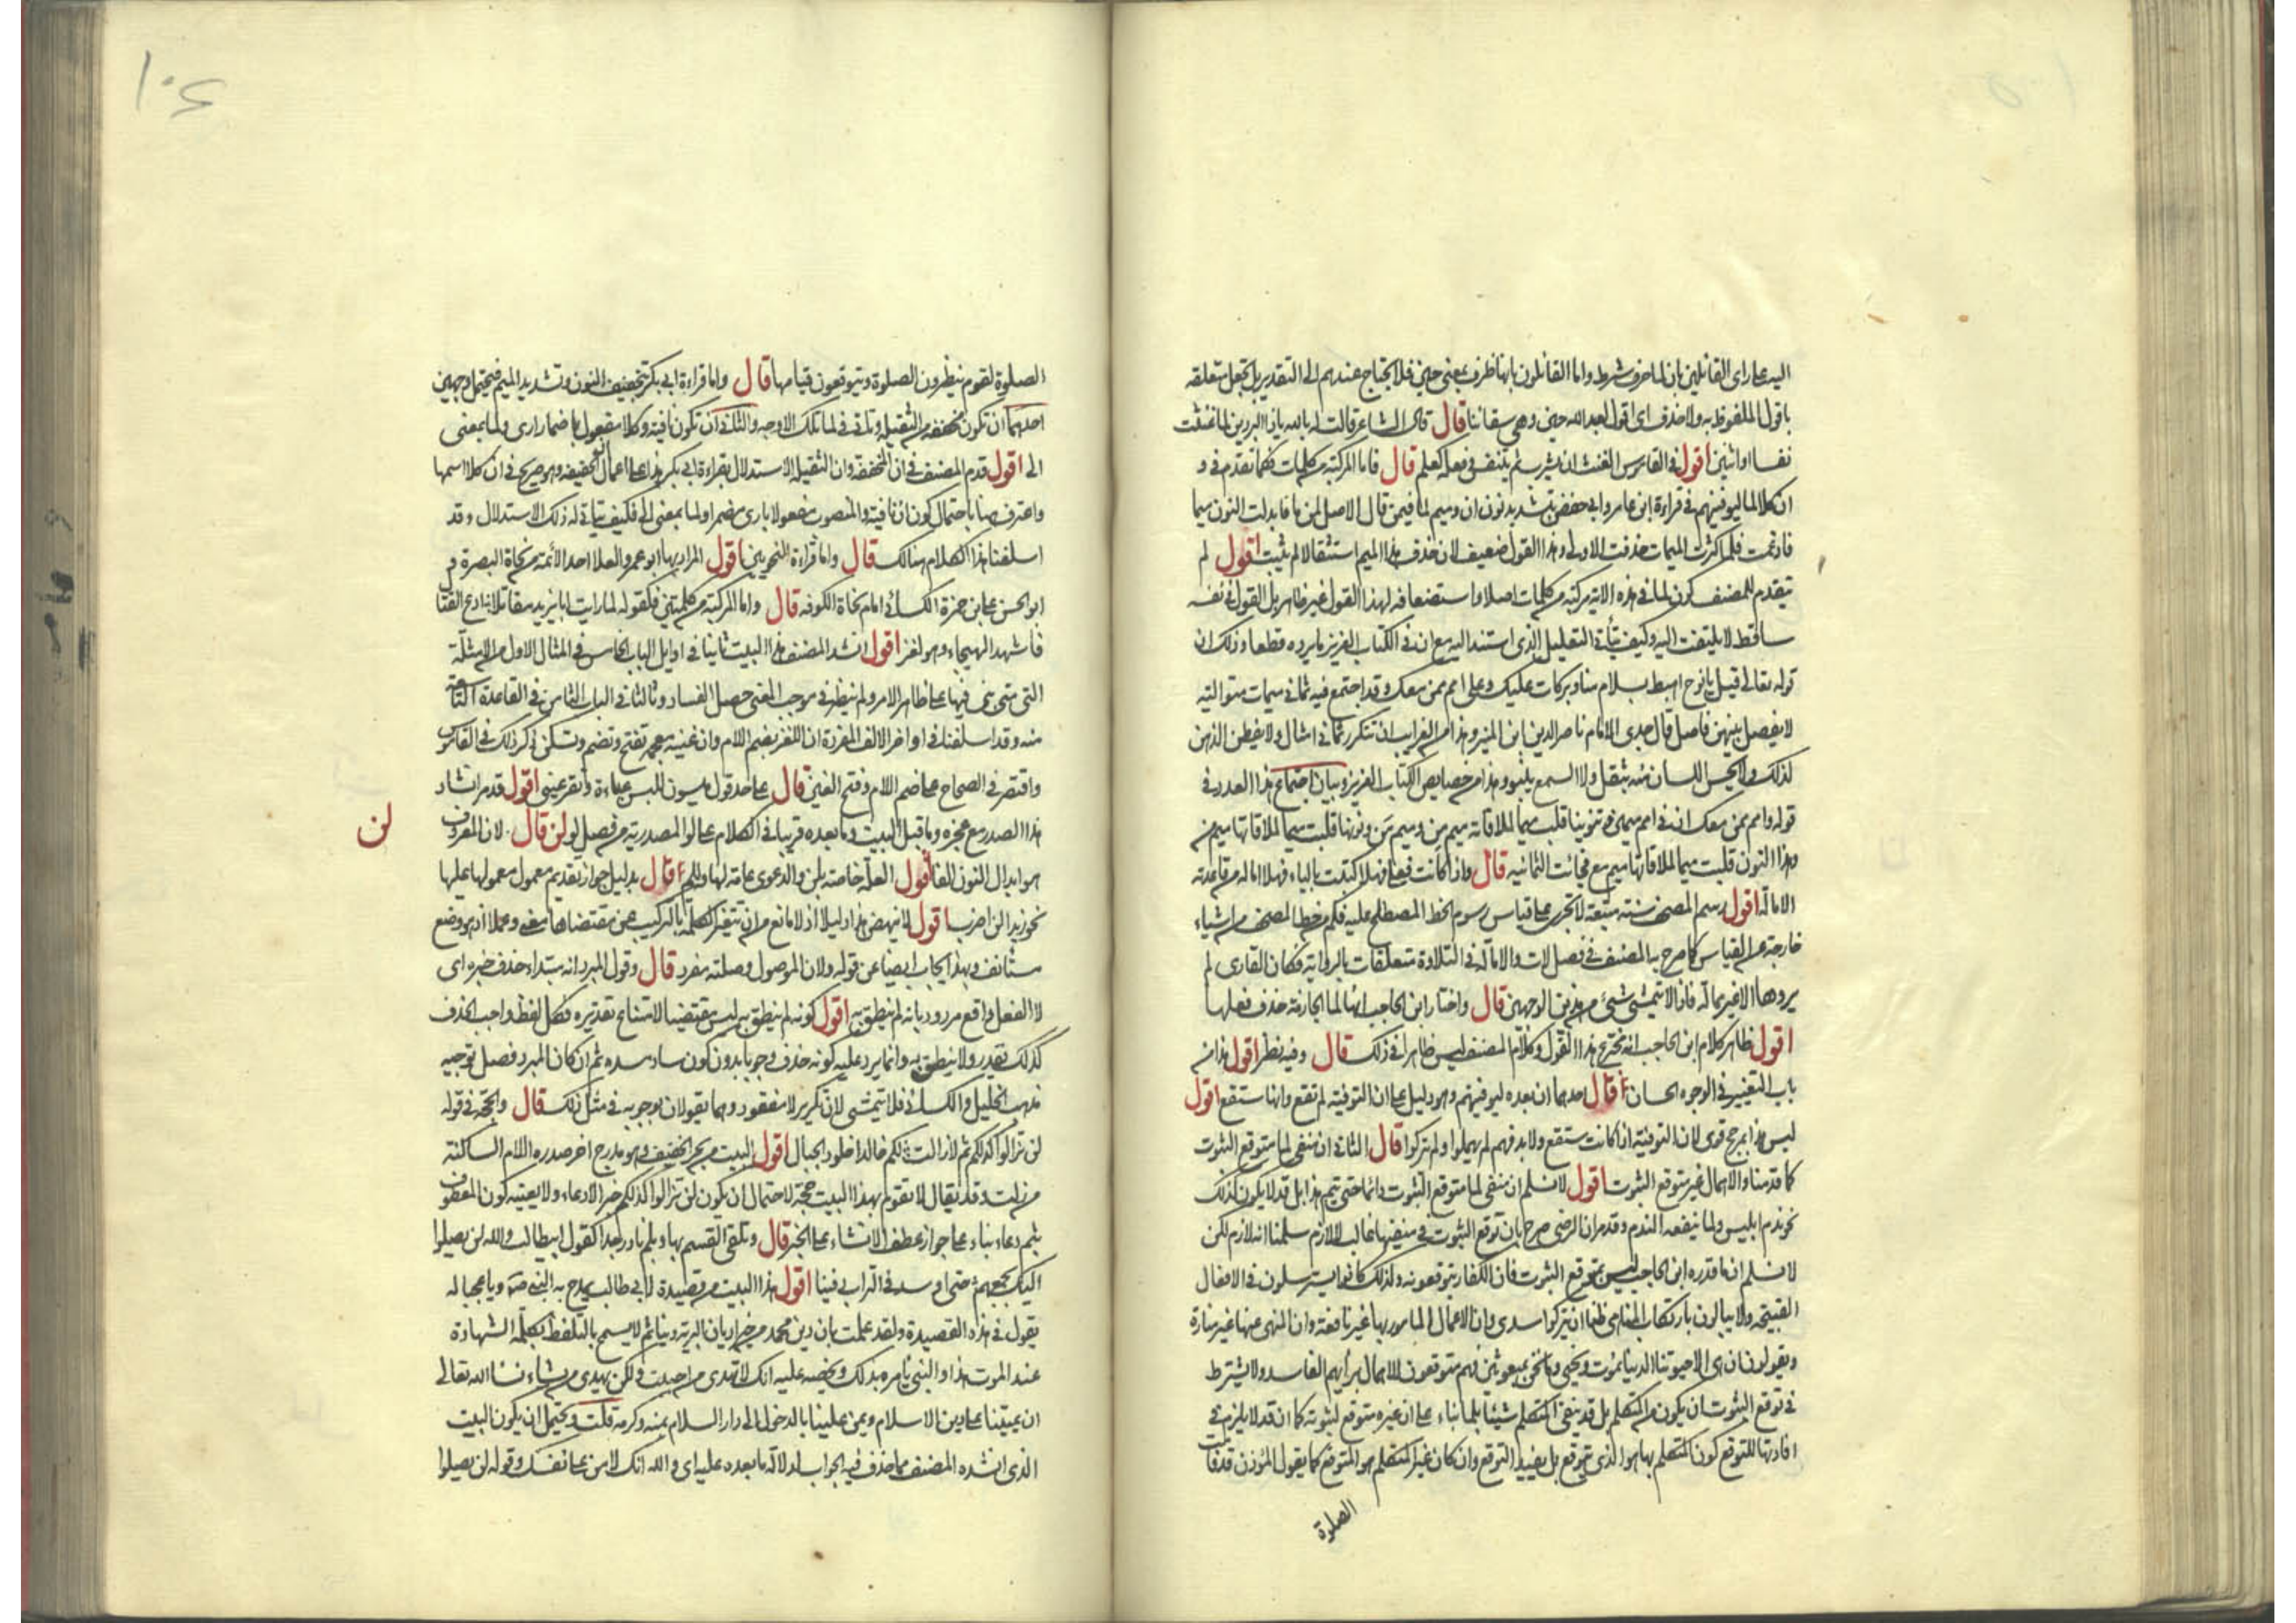 اليه على راى القائلين بان لما حرف شرط واما القائلون بانها ظرف بمعنى حين فلا يحتاج عندهم الى التقدير بل يجعل متعلقه
باقول الملفوظ به ولا حذف اى اقول لعبد الله حين وهى سقاؤنا قال قال الشاعر قالت له بالله يا ذا البردين لما غنثت
نفسا او اثنين اقول فى القاموس الغنث ان يشرب ثم يتنفس وفعله كعلم قال فاما المركبة من كلمات فكما تقدم فى و
ان كلا لما ليوفينهم فى قراءة ابن عامر وابى حفص بتشديد نون ان وميم لما فيمن قال الاصل لمن ما فابدلت النون ميما
فادغمت فلما كثرت الميمات حذفت الاولى وهذا القول ضعيف لان حذف هذا الميم استثقالا لم يثبت اقول لم
يتقدم للمصنف كون لما فى هذه الاية مركبة من كلمات اصلا واستضعافه لهذا القول غير ظاهر بل القول فى نفسه
ساقط لا يلتفت اليه وكيف يتأتى التعليل الذى استند اليه مع ان فى الكتاب العزيز ما يرده قطعا وذلك ان
قوله تعالى قيل يا نوح اهبط بسلام منا وبركات عليك وعلى امم ممن معك وقد اجتمع فيه ثمانى ميمات متوالية
لا يفصل بينهن فاصل قال جدى الامام ناصر الدين ابن المنير وهذا من الغرايب ان تتكرر ثمانى امثال ولا يفطن الذهن
لذلك ولا يحس اللسان منه بثقل ولا السمع بنبو وهذا من خصايص الكتاب العزيز وبيان اجتماع هذا العدد فى
قوله وامم ممن معك ان فى امم ميمين وتنوينا قلب ميما لملاقاته ميم من وميم من ونونها قلبت ميما لملاقاتها ميم من
وهذا النون قلبت ميما لملاقاتها ميم مع فجائت الثمانيه قال واذا كانت فعلى فهلا كتبت بالياء فهلا اماله من قاعدته
الامالة اقول رسم المصحف سنة متبعة لا تجرى على قياس رسوم الخط المصطلح عليه فكم من خط المصحف من اشياء
خارجة عن القياس كما صرح به المصنف فى فصل لات والامالة فى التلاوة متعلقات بالرواية فكان القارى لم
يردها الا غير ممالة فاذا لا يتمشى شىء من هذين الوجهين قال واختار ابن الحاجب انها لما الجازمة حذف فعلها
اقول ظاهر كلام ابن الحاجب انه مخترع هذا القول وكلام المصنف ليس ظاهرا فى ذلك قال وفيه نظر اقول هذا من
باب التغيير فى الوجوه الحسان قال احدهما ان بعده ليوفينهم وهو دليل على ان التوفية لم تقع وانها ستقع اقول
ليس هذا بمرجح قوى لان التوفية اذا كانت ستقع ولا بد فهم لم يهملوا ولم يتركوا قال الثانى ان منفى لما متوقع الثبوت
كما قدمنا والاهمال غير متوقع الثبوت اقول لا نسلم ان منفى لما متوقع الثبوت دائما حتى يتم هذا بل قد لا يكون كذلك
نحو ندم ابليس ولما ينفعه الندم وقدم ان الرضى صرح بان توقع الثبوت فى منفيها غالب لا لازم سلمنا انه لازم لكن
لا نسلم ان ما قدره ابن الحاجب ليس بمتوقع الثبوت فان الكفار يتوقعونه ولذلك كانوا يسترسلون فى الافعال
القبيحة ولا يبالون بارتكاب المناهى ظنا ان يتركوا سدى وان الاعمال المامور بها غير نافعة وان المنهى عنها غير ضارة
ويقولون ان هى الا حيوتنا الدنيا نموت ونحيى وما نحن بمبعوثين فهم متوقعون للاهمال برأيهم الفاسد ولا يشترط
فى توقع الثبوت ان يكون من المتكلم بل قد ينفى المتكلم شيئا بلما بناء على ان غيره متوقع لثبوته كما ان قد لا يلزم فى
افادتها للتوقع كون المتكلم بها هو الذى يتوقع بل يفيد التوقع وان كان غير المتكلم هو المتوقع كما يقول المؤذن قد قامت
الصلوة
١٠٤
الصلوة لقوم ينظرون الصلوة ويتوقعون قيامها قال واما قراءة ابى بكر بتخفيف النون وتشديد الميم فيحتمل وجهين
احدهما ان تكون مخففة من الثقيلة وتاتى فى لما تلك الاوجه والثانى ان تكون نافية وكلا مفعول باضمار ارى ولما بمعنى
الى اقول قدم المصنف فى ان المخففة وان الثقيلة الاستدلال بقراءة ابى بكر هذا على اعمال الخفيفة وهو صريح فى ان كلا اسمها
واعترف هنا باحتمال كون ان نافية والمنصوب مفعولا بارى مضمرا ولما بمعنى الى فكيف يتأتى له ذلك الاستدلال وقد
اسلفنا هذا الكلام هنالك قال واما قراءة النحويين اقول المراد بها ابو عمرو العلا احد الائمة من نحاة البصرة و
ابو الحسن على بن حمزة الكسائى امام نحاة الكوفة قال واما المركبة من كلمتين فكقوله لما رايت ابا يزيد مقاتلا ادع القتا
فاشهد الهيجاء وهو لغز اقول انشد المصنف هذا البيت ثانيا فى اوايل الباب الخامس فى المثال الاول من الامثلة
التى متى بنى فيها على ظاهر الامر ولم ينظر فى موجب المعنى حصل الفساد وثالثا فى الباب الثامن فى القاعدة التاسعة
منه وقد اسلفنا فى اواخر الالف المفردة ان اللغز بضم اللام وان غينه معجمه تفتح وتضم وتسكن ذكر ذلك فى القاموس
واقتصر فى الصحاح على ضم اللام وفتح الغين قال على حد قول ميسون للبس عباءة وتقر عينى اقول قدم انشاد
هذا الصدر مع عجزه وما قبل البيت وما بعده قريبا فى الكلام على لو المصدرية من فصل لو لن قال لان المعروف
لن
هو ابدال النون الفا اقول العلة خاصة بلن والدعوى عامة لها ولم قال بدليل جواز تقديم معمول معمولها عليها
نحو زيدا لن اضرب اقول لا ينهض هذا دليلا اذ لا مانع من ان تتغير الكلمة بالتركيب عن مقتضاها معنى وعملا اذ هو وضع
مستأنف وبهذا يجاب ايضا عن قوله ولان الموصول وصلته مفرد قال وقول المبرد انه مبتداء حذف خبره اى
لا الفعل واقع مردود بانه لم ينطق به اقول كونه لم ينطق به ليس مقتضيا لامتناع تقديره فكل لفظ واجب الحذف
كذلك يقدر ولا ينطق به وانما يرد عليه كونه حذف وجوبا بدون كون ساد مسده ثم ان كان المبرد فصل توجيه
مذهب الخليل والكسائى فلا يتمشى لان تكرير لا مفقود وهما يقولان بوجوبه فى مثل ذلك قال والحجة فى قوله
لن تزالوا كذلكم ثم لا زالت لكم خالدا خلود الجبال اقول البيت من بحر الخفيف وهو مدرج اخر صدره اللام الساكنة
من زلت وقد يقال لا تقوم بهذا البيت حجة لاحتمال ان يكون لن تزالوا كذلكم خبرا لا دعاء ولا يعينه كون المعطوف
بثم دعاء بناء على جواز عطف الانشاء على الخبر قال وتلقى القسم بها وبلم نادر جدا كقول ابيطالب والله لن يصلوا
اليك بجمعهم حتى اوسد فى التراب دفينا اقول هذا البيت من قصيدة لابى طالب يمدح به النبى ص ويا عجبا له
يقول فى هذه القصيدة ولقد علمت بان دين محمد من خير اديان البرية دينا ثم لا يسمح بالتلفظ بكلمة الشهادة
عند الموت هذا والنبى يأمره بذلك ويحضه عليه انك لا تهدى من احببت ولكن الله يهدى من يشاء نسأ الله تعالى
ان يميتنا على دين الاسلام ويمن علينا بالدخول الى دار السلام بمنه وكرمه قلت ويحتمل ان يكون البيت
الذى انشده المصنف مما حذف فيه الجواب لدلالة ما بعده عليه اى والله انك لامن على نفسك وقوله لن يصلوا